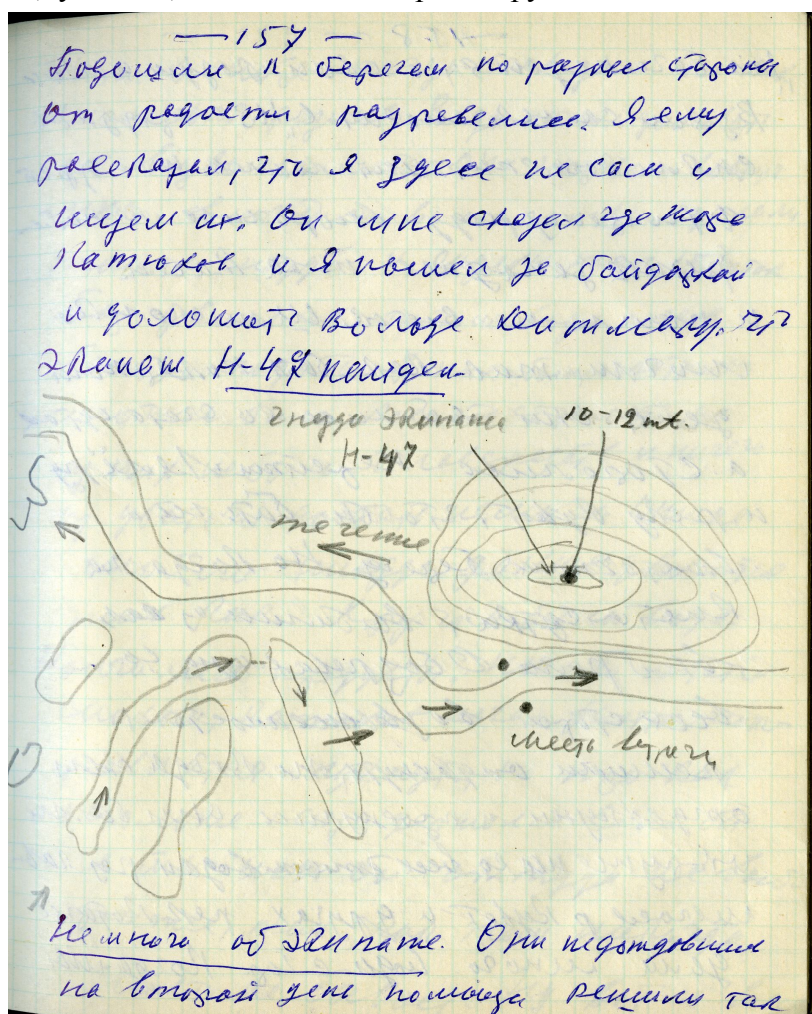 — 157 —
Подошли к берегам по разные стороны
от радости разревелись. Я ему
рассказал, что я здесь не сам и
ищем их. Он мне сказал где тоже
Катюхов и я пошел за байдаркой
и доложить Вольде что
экипаж Н-47 найден.
гнездо экипажа
Н-47
10-12 mt.
течение
месть встречи
Немного об экипаже. Они недождавшись
на второй день помощи решили так